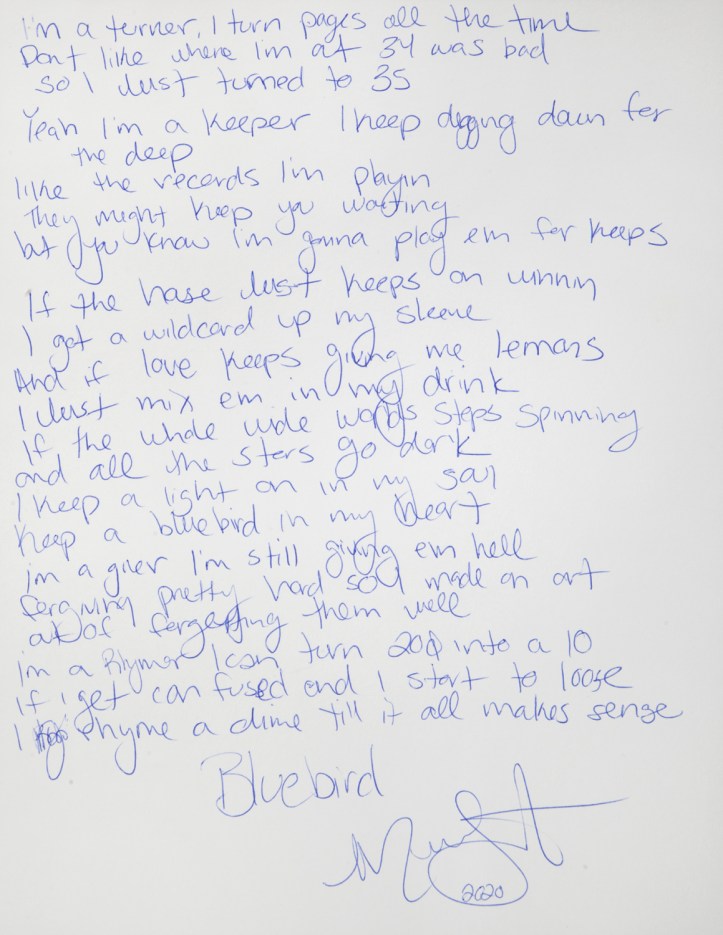 I'm a turner, I turn pages all the time
Don't like where I'm at 34 was bad
so I Just turned to 35
Yeah I'm a keeper I keep digging down for
the deep
like the records I'm playin
They might keep you waiting
but you know i'm gonna play em for keeps
If the hase Just keeps on winnin
I got a wildcard up my sleeve
And if love keeps giving me lemons
I Just mix em in my drink
If the whole wide words steps spinning
and all the stars go dark
I keep a light on in my soul
keep a bluebird in my heart
im a giver I'm still giving em hell
forgiving pretty hard so I made an art
out of forgetting them well
im a Rhymer I can turn 20¢ into a 10
if i get confused and I start to loose
I rhyme a dime till it all makes sense
Bluebird
2020